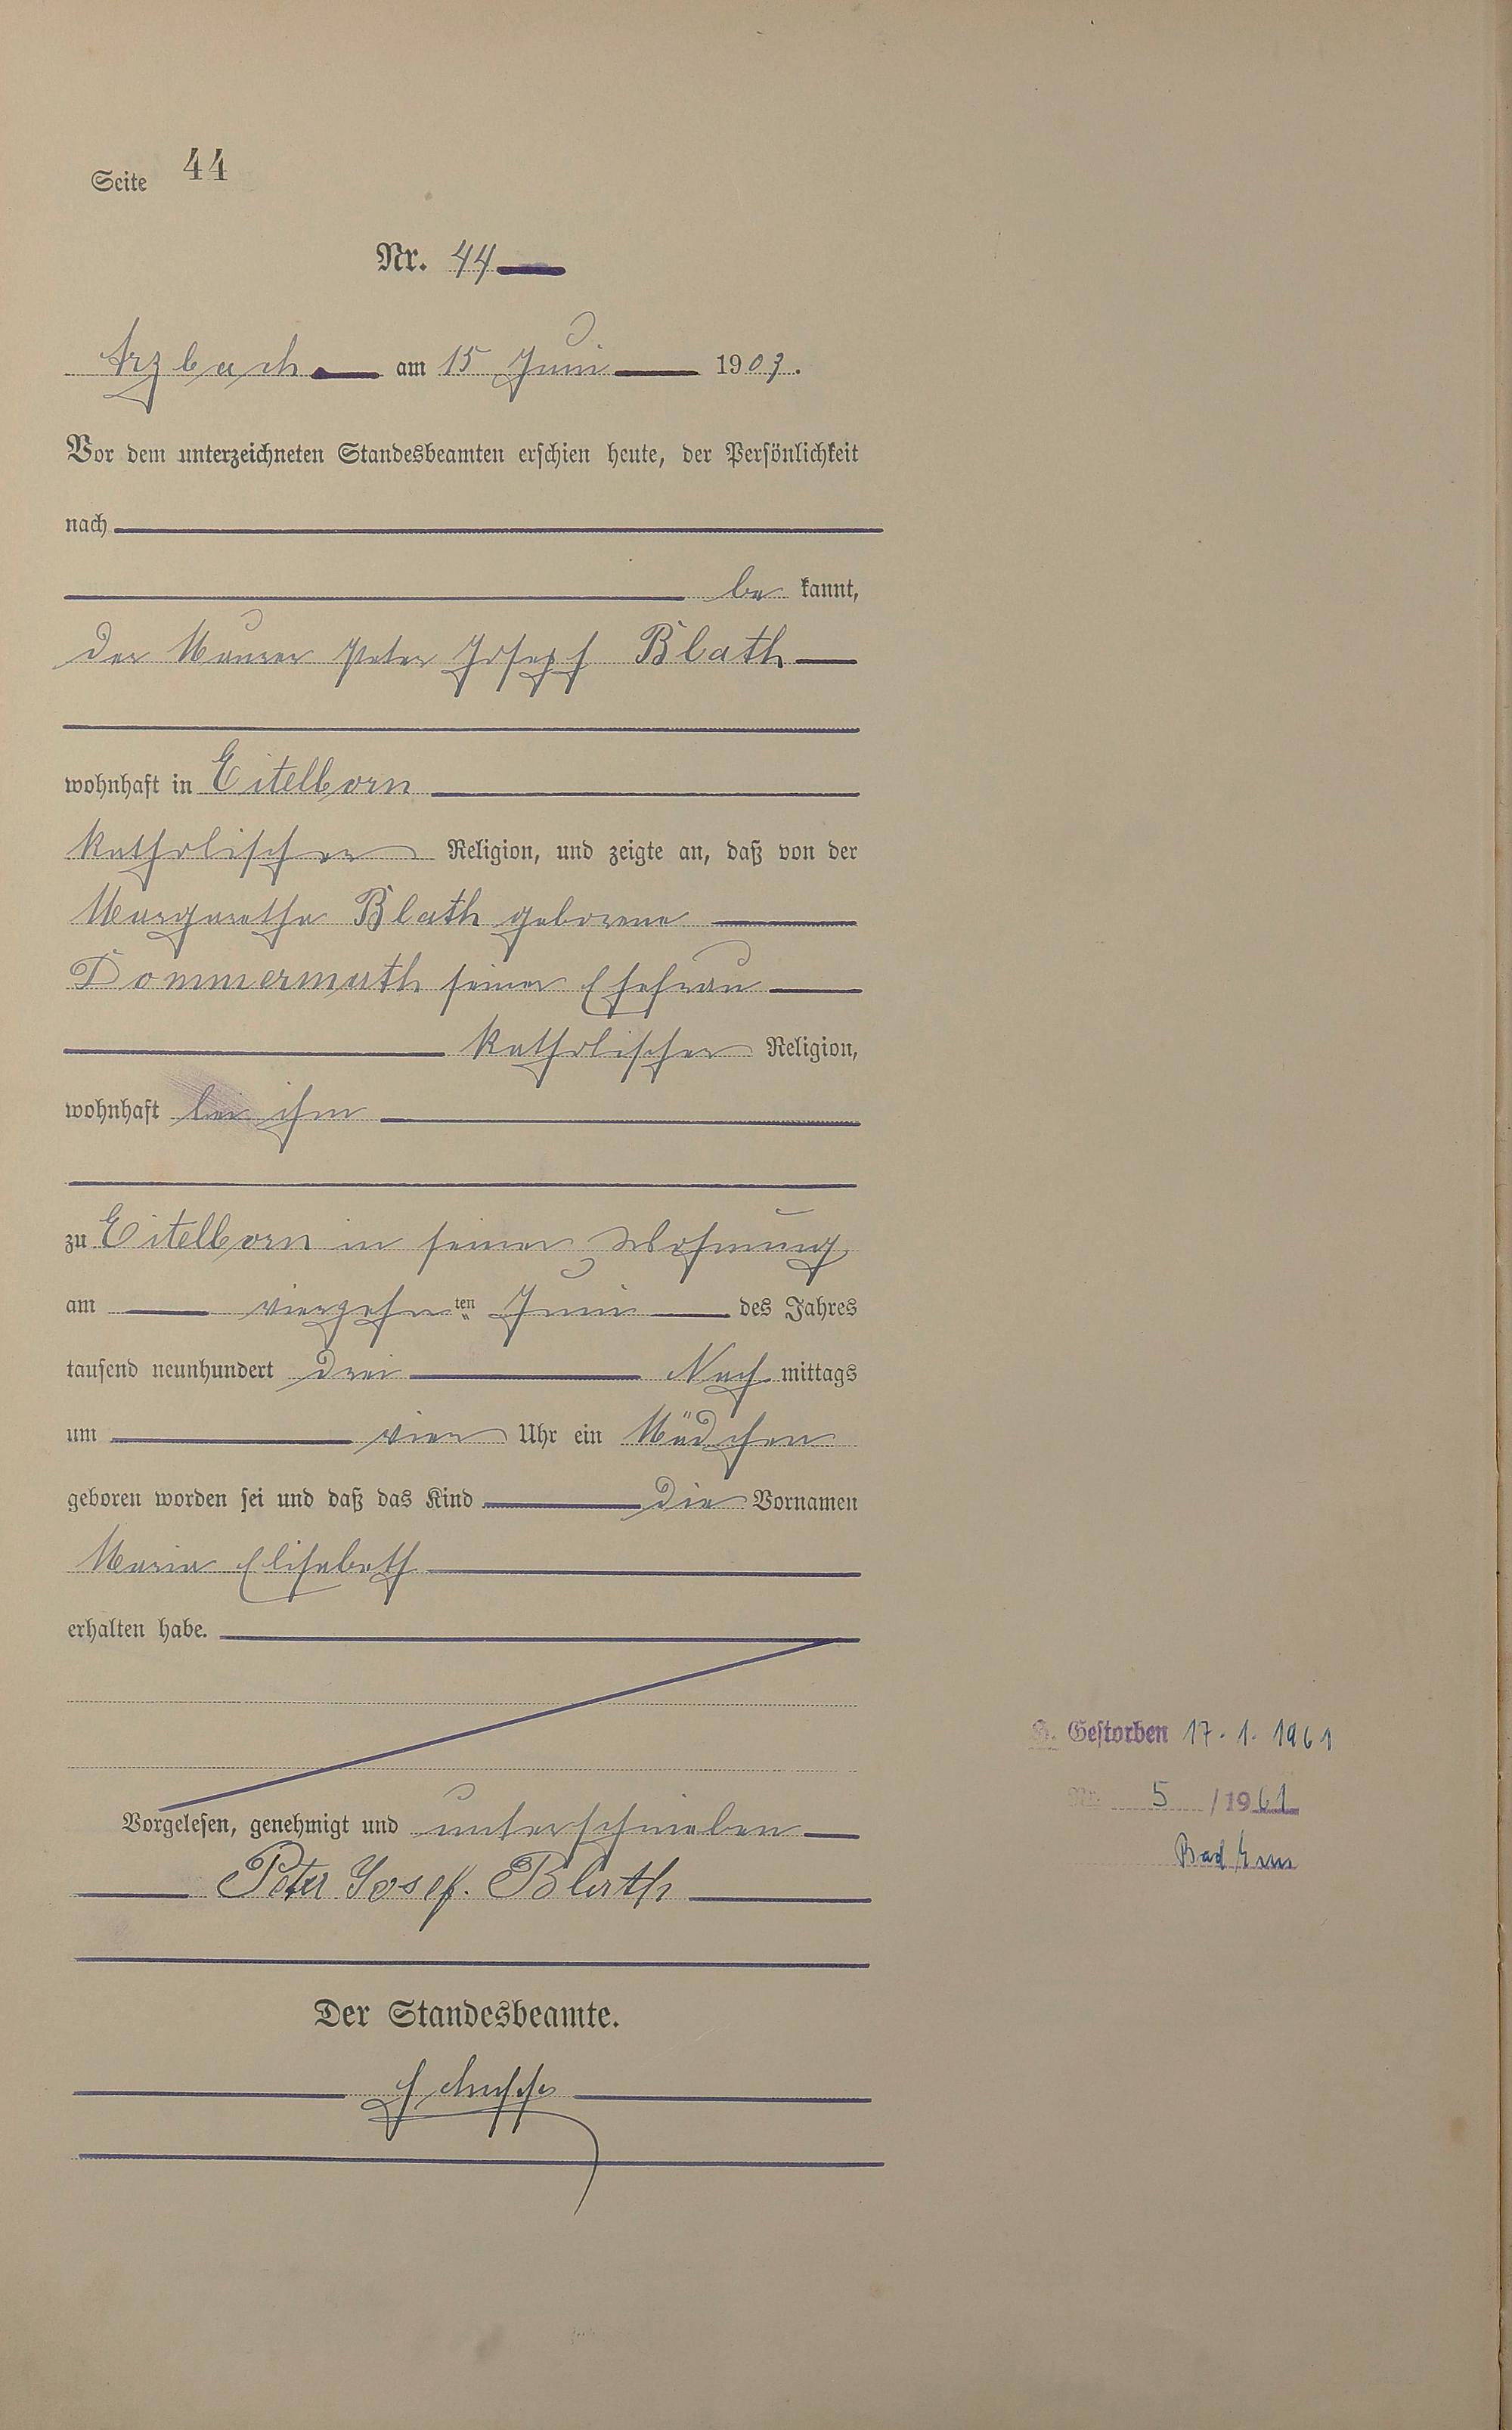 Seite 44
Nr. 44
Arzbach am 15 Juni 1903.
Vor dem unterzeichneten Standesbeamten erschien heute, der Persönlichkeit
nach
be kannt,
der Maurer Peter Joseph Blath
wohnhaft in Eitelborn
katholischer Religion, und zeigte an, daß von der
Margaretha Blath geborene
Dommermuth seiner Ehefrau
katholischer Religion,
wohnhaft bei ihm
zu Eitelborn in seiner Wohnung
am vierzehnten Juni des Jahres
tausend neunhundert drei Nach mittags
um vier Uhr ein Mädchen
geboren worden sei und daß das Kind die Vornamen
Maria Elisabeth
erhalten habe.
Vorgelesen, genehmigt und unterschrieben
Peter Josef. Blath
Der Standesbeamte.
Gestorben 17. 1. 1961
Nr. 5 /1961
Bad Ems